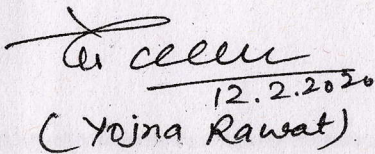 12.2.2020
(Yojna Rawat)